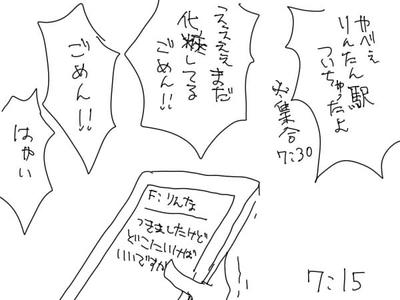 やべぇ
りんたん駅
ついちゃたよ
※集合
7:30
えええまだ
化粧してる
ごめん!!
ごめん!!
はやい
F:りんな
つきましたけど
どこにいけば
いいですか
7:15